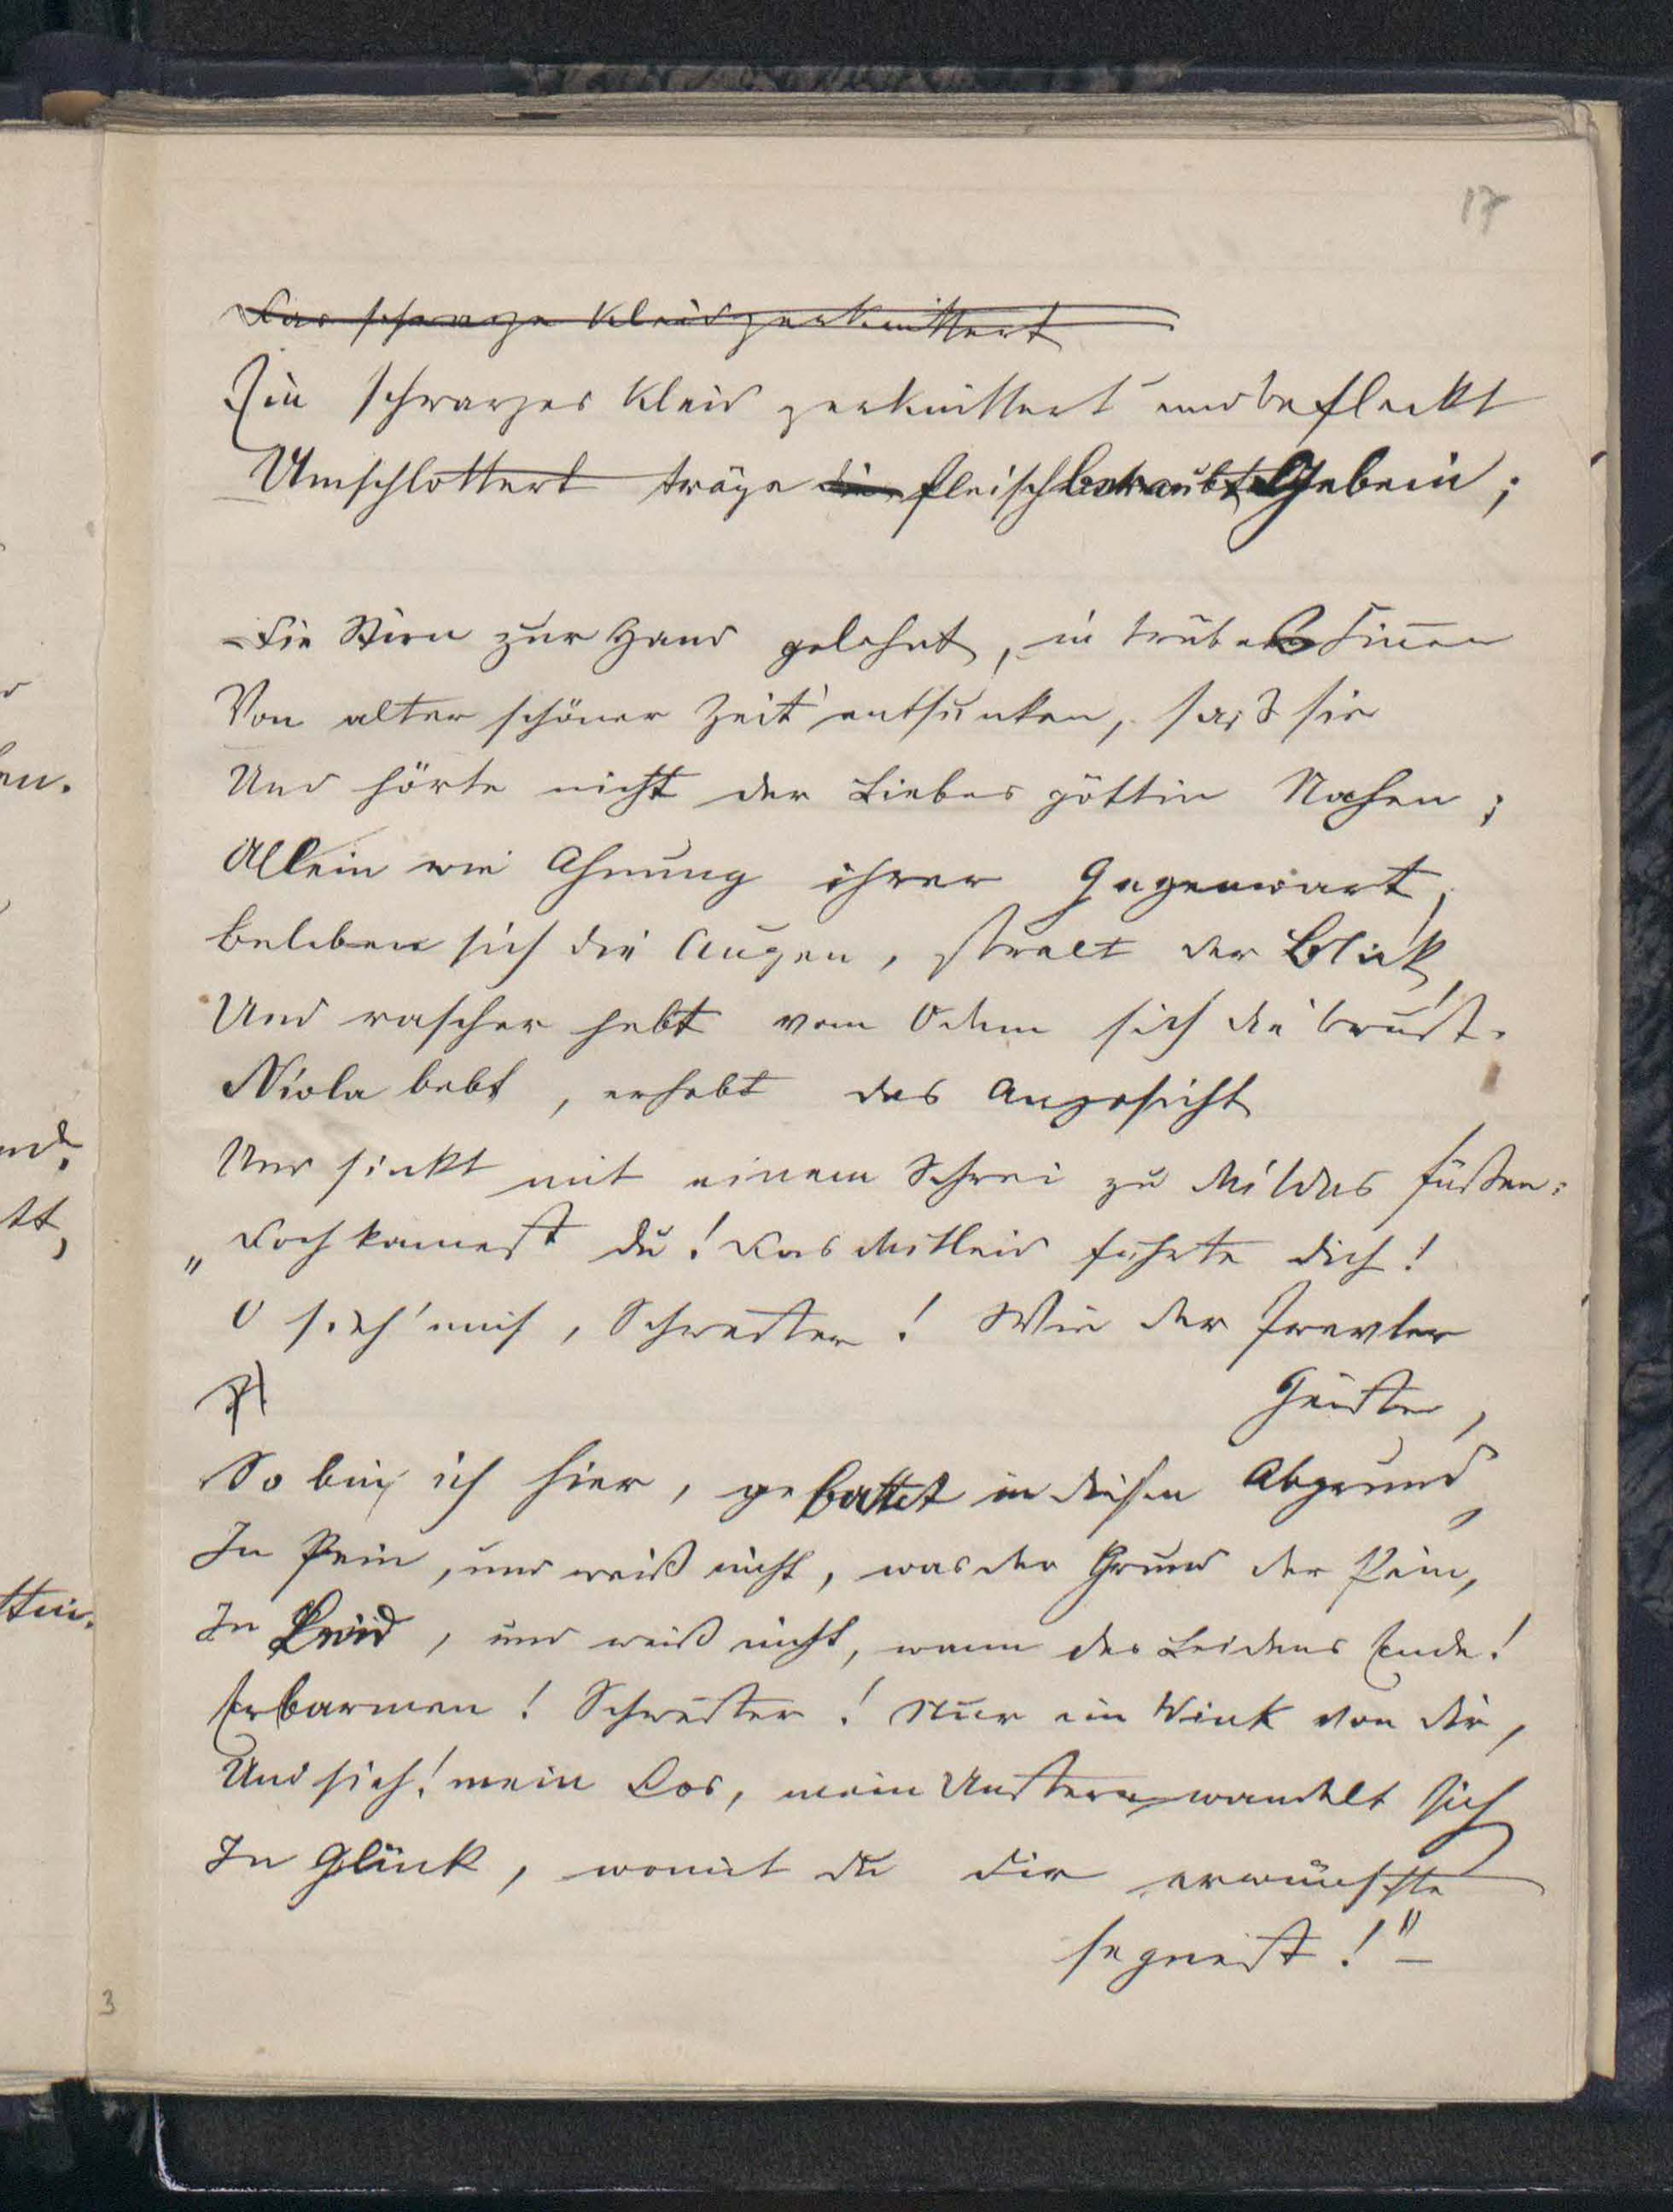 17
Das schwarze Kleid zerknittert
Ein schwarzes Kleid zerknittert und befleckt
Umschlottert träge die fleischberaubt Gebein;
Die Stirn zur Hand gelehnt, in trübes Sinnen
Von alter schöner Zeit entsunken, saß sie
Und hörte nicht der Liebesgöttin Nahen;
Allein wie Ahnung ihrer Gegenwart,
Beleben sich die Augen, stralt der Blick,
Und rascher hebt vom Odem sich die Brust.
Niola bebt, erhebt das Angesicht
Und sinkt mit einem Schrei zu Mildas Füßen:
„Doch kamest du! Das Mitleid führte dich!
O sieh' mich, Schwester! Wie der Frevler
Geister,
So bin ich hier, gebettet in diesen Abgrund,
In Pein, und weiß nicht, was der Grund der Pein,
In Leid, und weiß nicht, wann des Leidens Ende!
Erbarmen! Schwester! Nur ein Wink von dir,
Und sieh! mein Los, mein Unstern wandelt sich
In Glück, womit du die erwünschte
segnest!" –
3
en.
nd.
tt,
ttin.